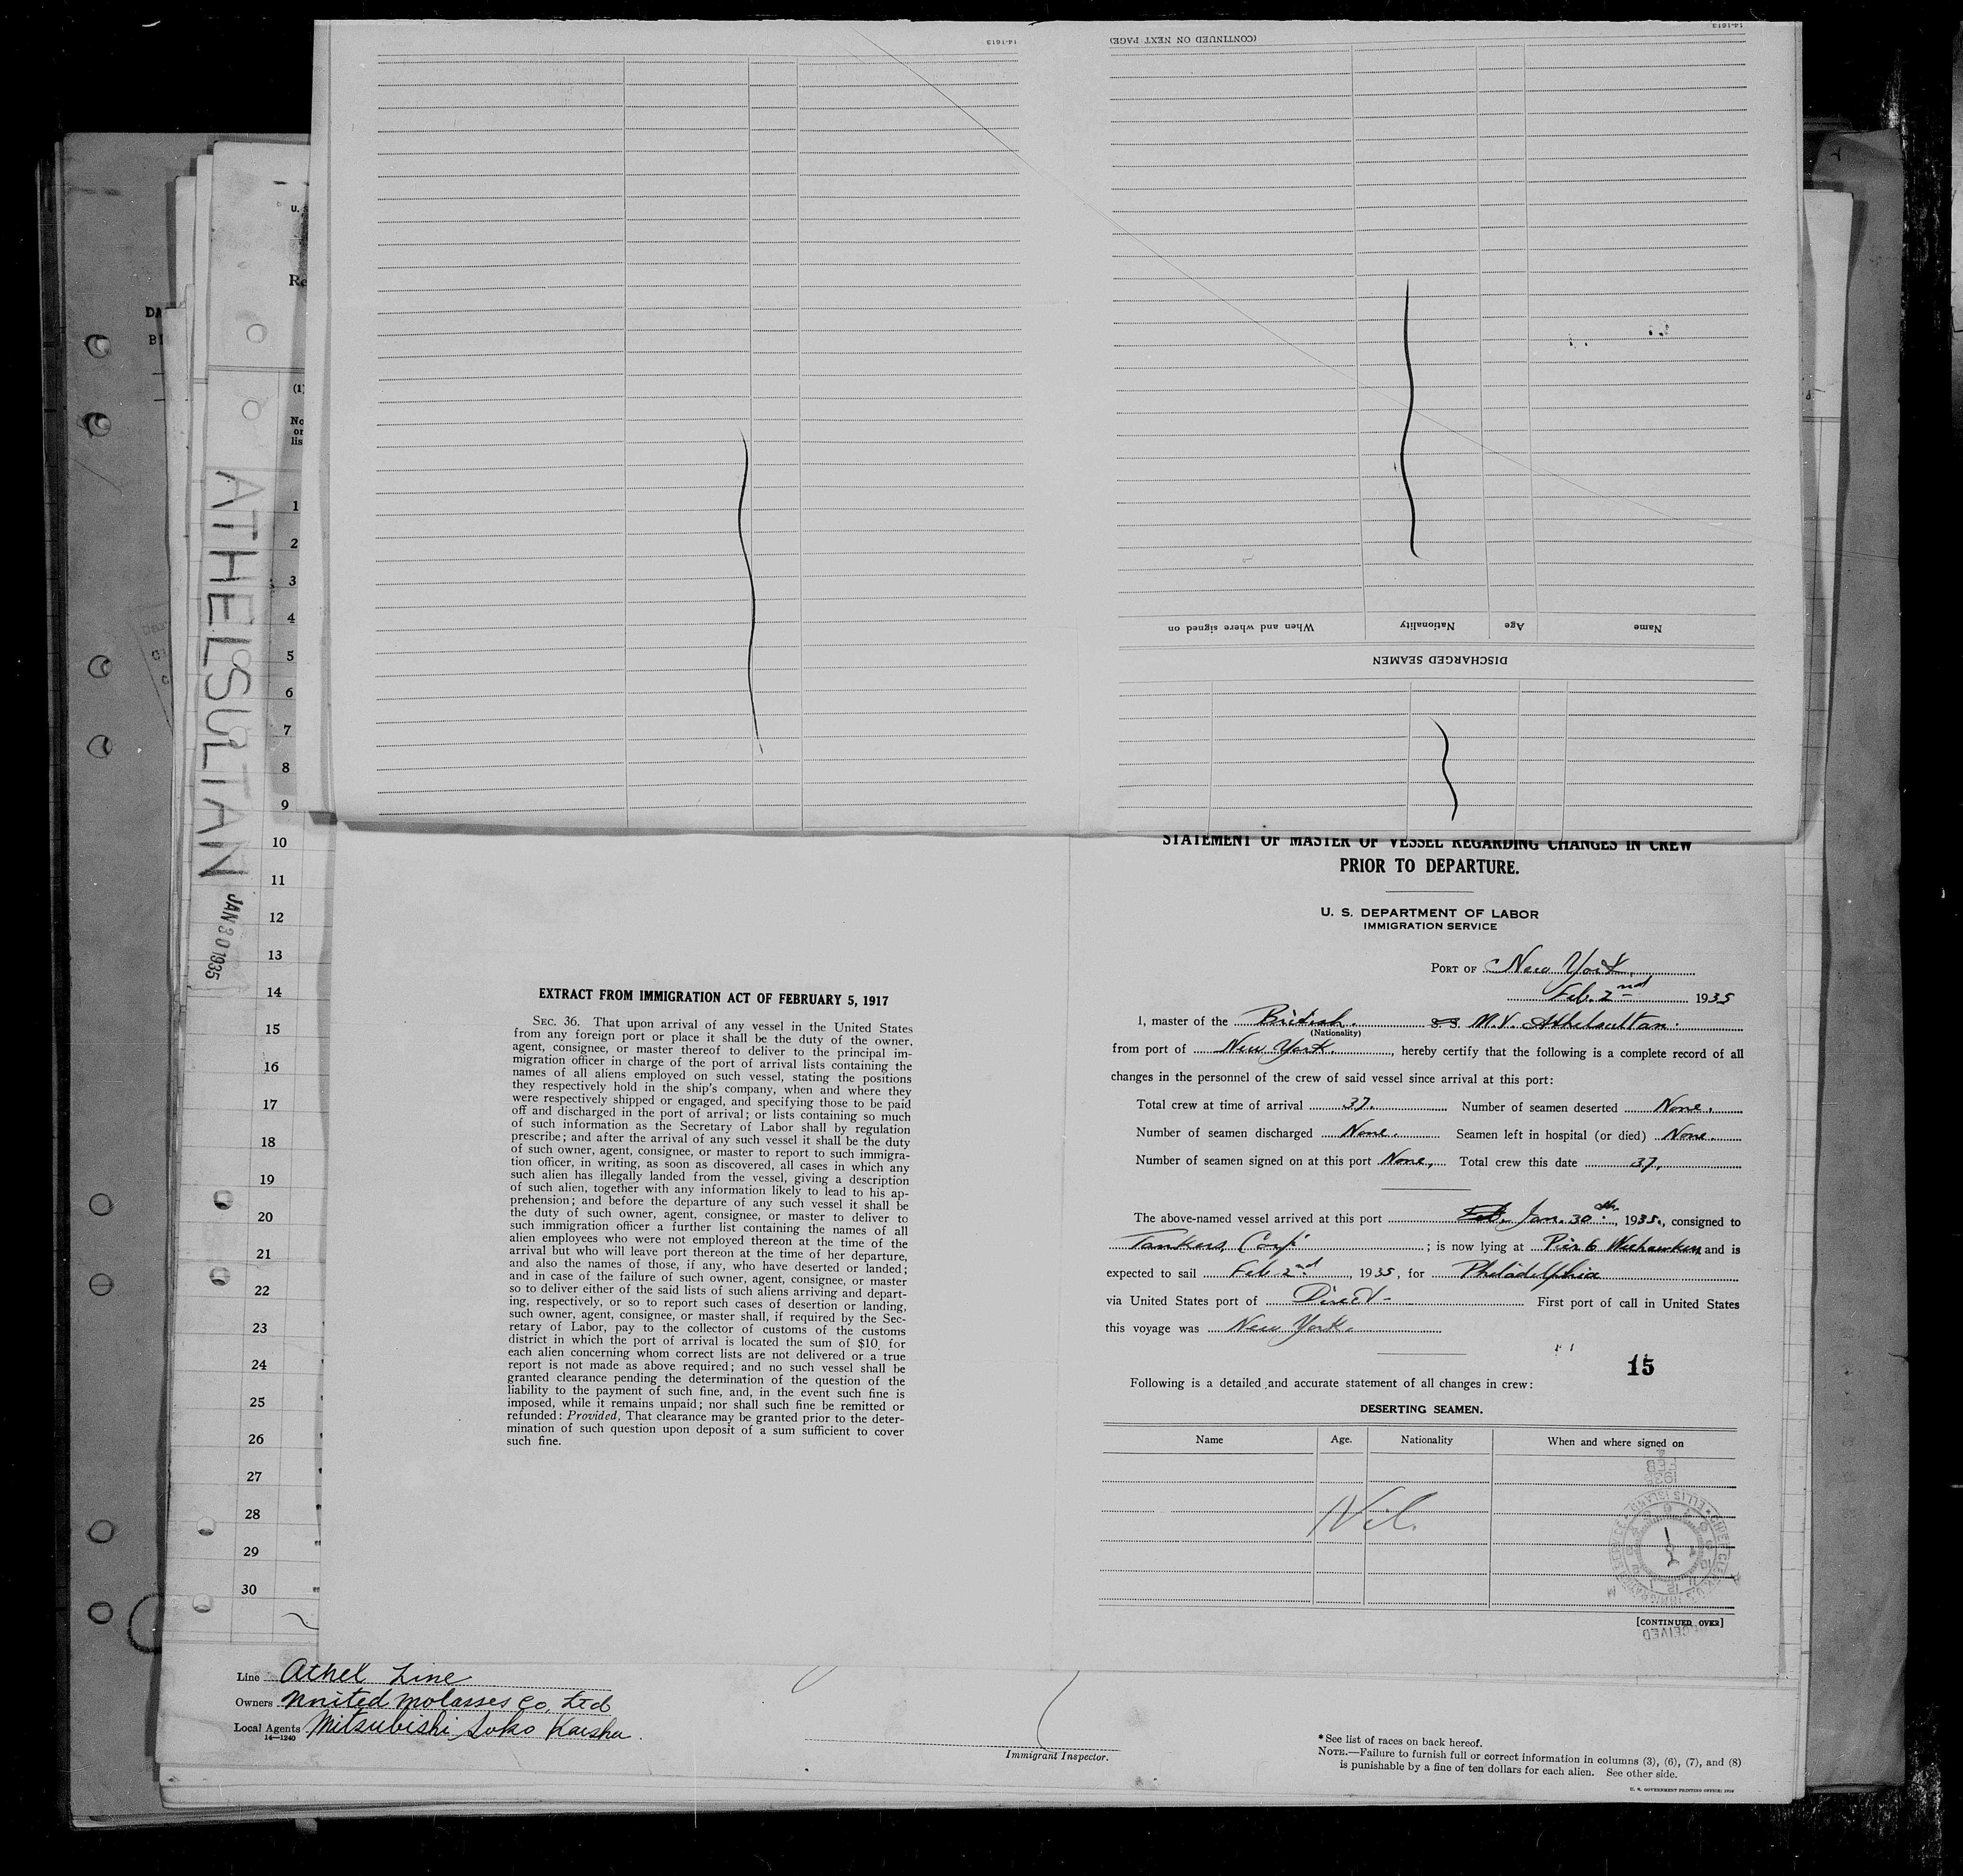 14-1613
(CONTINUED ON NEXT PAGE)
14-1613
When and where signed on Nationality Age Name
DISCHARGED SEAMEN
U. S
Re
DA
BI
(1)
No
or
lis
1
2
3
4
5
6
7
8
9
10
11
12
13
14
15
16
17
18
19
20
21
22
23
24
25
26
27
28
29
30
ATHELSULTAN
JAN 30 1935
EXTRACT FROM IMMIGRATION ACT OF FEBRUARY 5, 1917
SEC. 36. That upon arrival of any vessel in the United States
from any foreign port or place it shall be the duty of the owner,
agent, consignee, or master thereof to deliver to the principal im-
migration officer in charge of the port of arrival lists containing the
names of all aliens employed on such vessel, stating the positions
they respectively hold in the ship's company, when and where they
were respectively shipped or engaged, and specifying those to be paid
off and discharged in the port of arrival; or lists containing so much
of such information as the Secretary of Labor shall by regulation
prescribe; and after the arrival of any such vessel it shall be the duty
of such owner, agent, consignee, or master to report to such immigra-
tion officer, in writing, as soon as discovered, all cases in which any
such alien has illegally landed from the vessel, giving a description
of such alien, together with any information likely to lead to his ap-
prehension; and before the departure of any such vessel it shall be
the duty of such owner, agent, consignee, or master to deliver to
such immigration officer a further list containing the names of all
alien employees who were not employed thereon at the time of the
arrival but who will leave port thereon at the time of her departure,
and also the names of those, if any, who have deserted or landed;
and in case of the failure of such owner, agent, consignee, or master
so to deliver either of the said lists of such aliens arriving and depart-
ing, respectively, or so to report such cases of desertion or landing,
such owner, agent, consignee, or master shall, if required by the Sec-
retary of Labor, pay to the collector of customs of the customs
district in which the port of arrival is located the sum of $10 for
each alien concerning whom correct lists are not delivered or a true
report is not made as above required; and no such vessel shall be
granted clearance pending the determination of the question of the
liability to the payment of such fine, and, in the event such fine is
imposed, while it remains unpaid; nor shall such fine be remitted or
refunded: Provided, That clearance may be granted prior to the deter-
mination of such question upon deposit of a sum sufficient to cover
such fine.
STATEMENT OF MASTER OF VESSEL REGARDING CHANGES IN CREW
PRIOR TO DEPARTURE.
U. S. DEPARTMENT OF LABOR
IMMIGRATION SERVICE
PORT OF New York.
Feb. 2nd 1935
I, master of the British. S.S. M.V. Athelsultan.
(Nationality)
from port of New York., hereby certify that the following is a complete record of all
changes in the personnel of the crew of said vessel since arrival at this port:
Total crew at time of arrival 37. Number of seamen deserted None.
Number of seamen discharged None. Seamen left in hospital (or died) None.
Number of seamen signed on at this port None. Total crew this date 37.
The above-named vessel arrived at this port Feb. Jan. 30th., 1935., consigned to
Tankers Corp; is now lying at Pier 6 Weehawken and is
expected to sail Feb 2nd, 1935, for Philadelphia
via United States port of Direct- First port of call in United States
this voyage was New York.
15
Following is a detailed and accurate statement of all changes in crew:
DESERTING SEAMEN.
Name Age. Nationality When and where signed on
Nil.
FEB
1935
CHIEF CLERK U.S. IMMIGRATION SERVICE ELLIS ISLAND
RECEIVED
[CONTINUED OVER]
Line Athel Line
Owners United Molasses Co. Ltd
Local Agents Mitsubishi Soko Kaisha.
14—1240
Immigrant Inspector.
*See list of races on back hereof.
NOTE.—Failure to furnish full or correct information in columns (3), (6), (7), and (8)
is punishable by a fine of ten dollars for each alien. See other side.
U. S. GOVERNMENT PRINTING OFFICE: